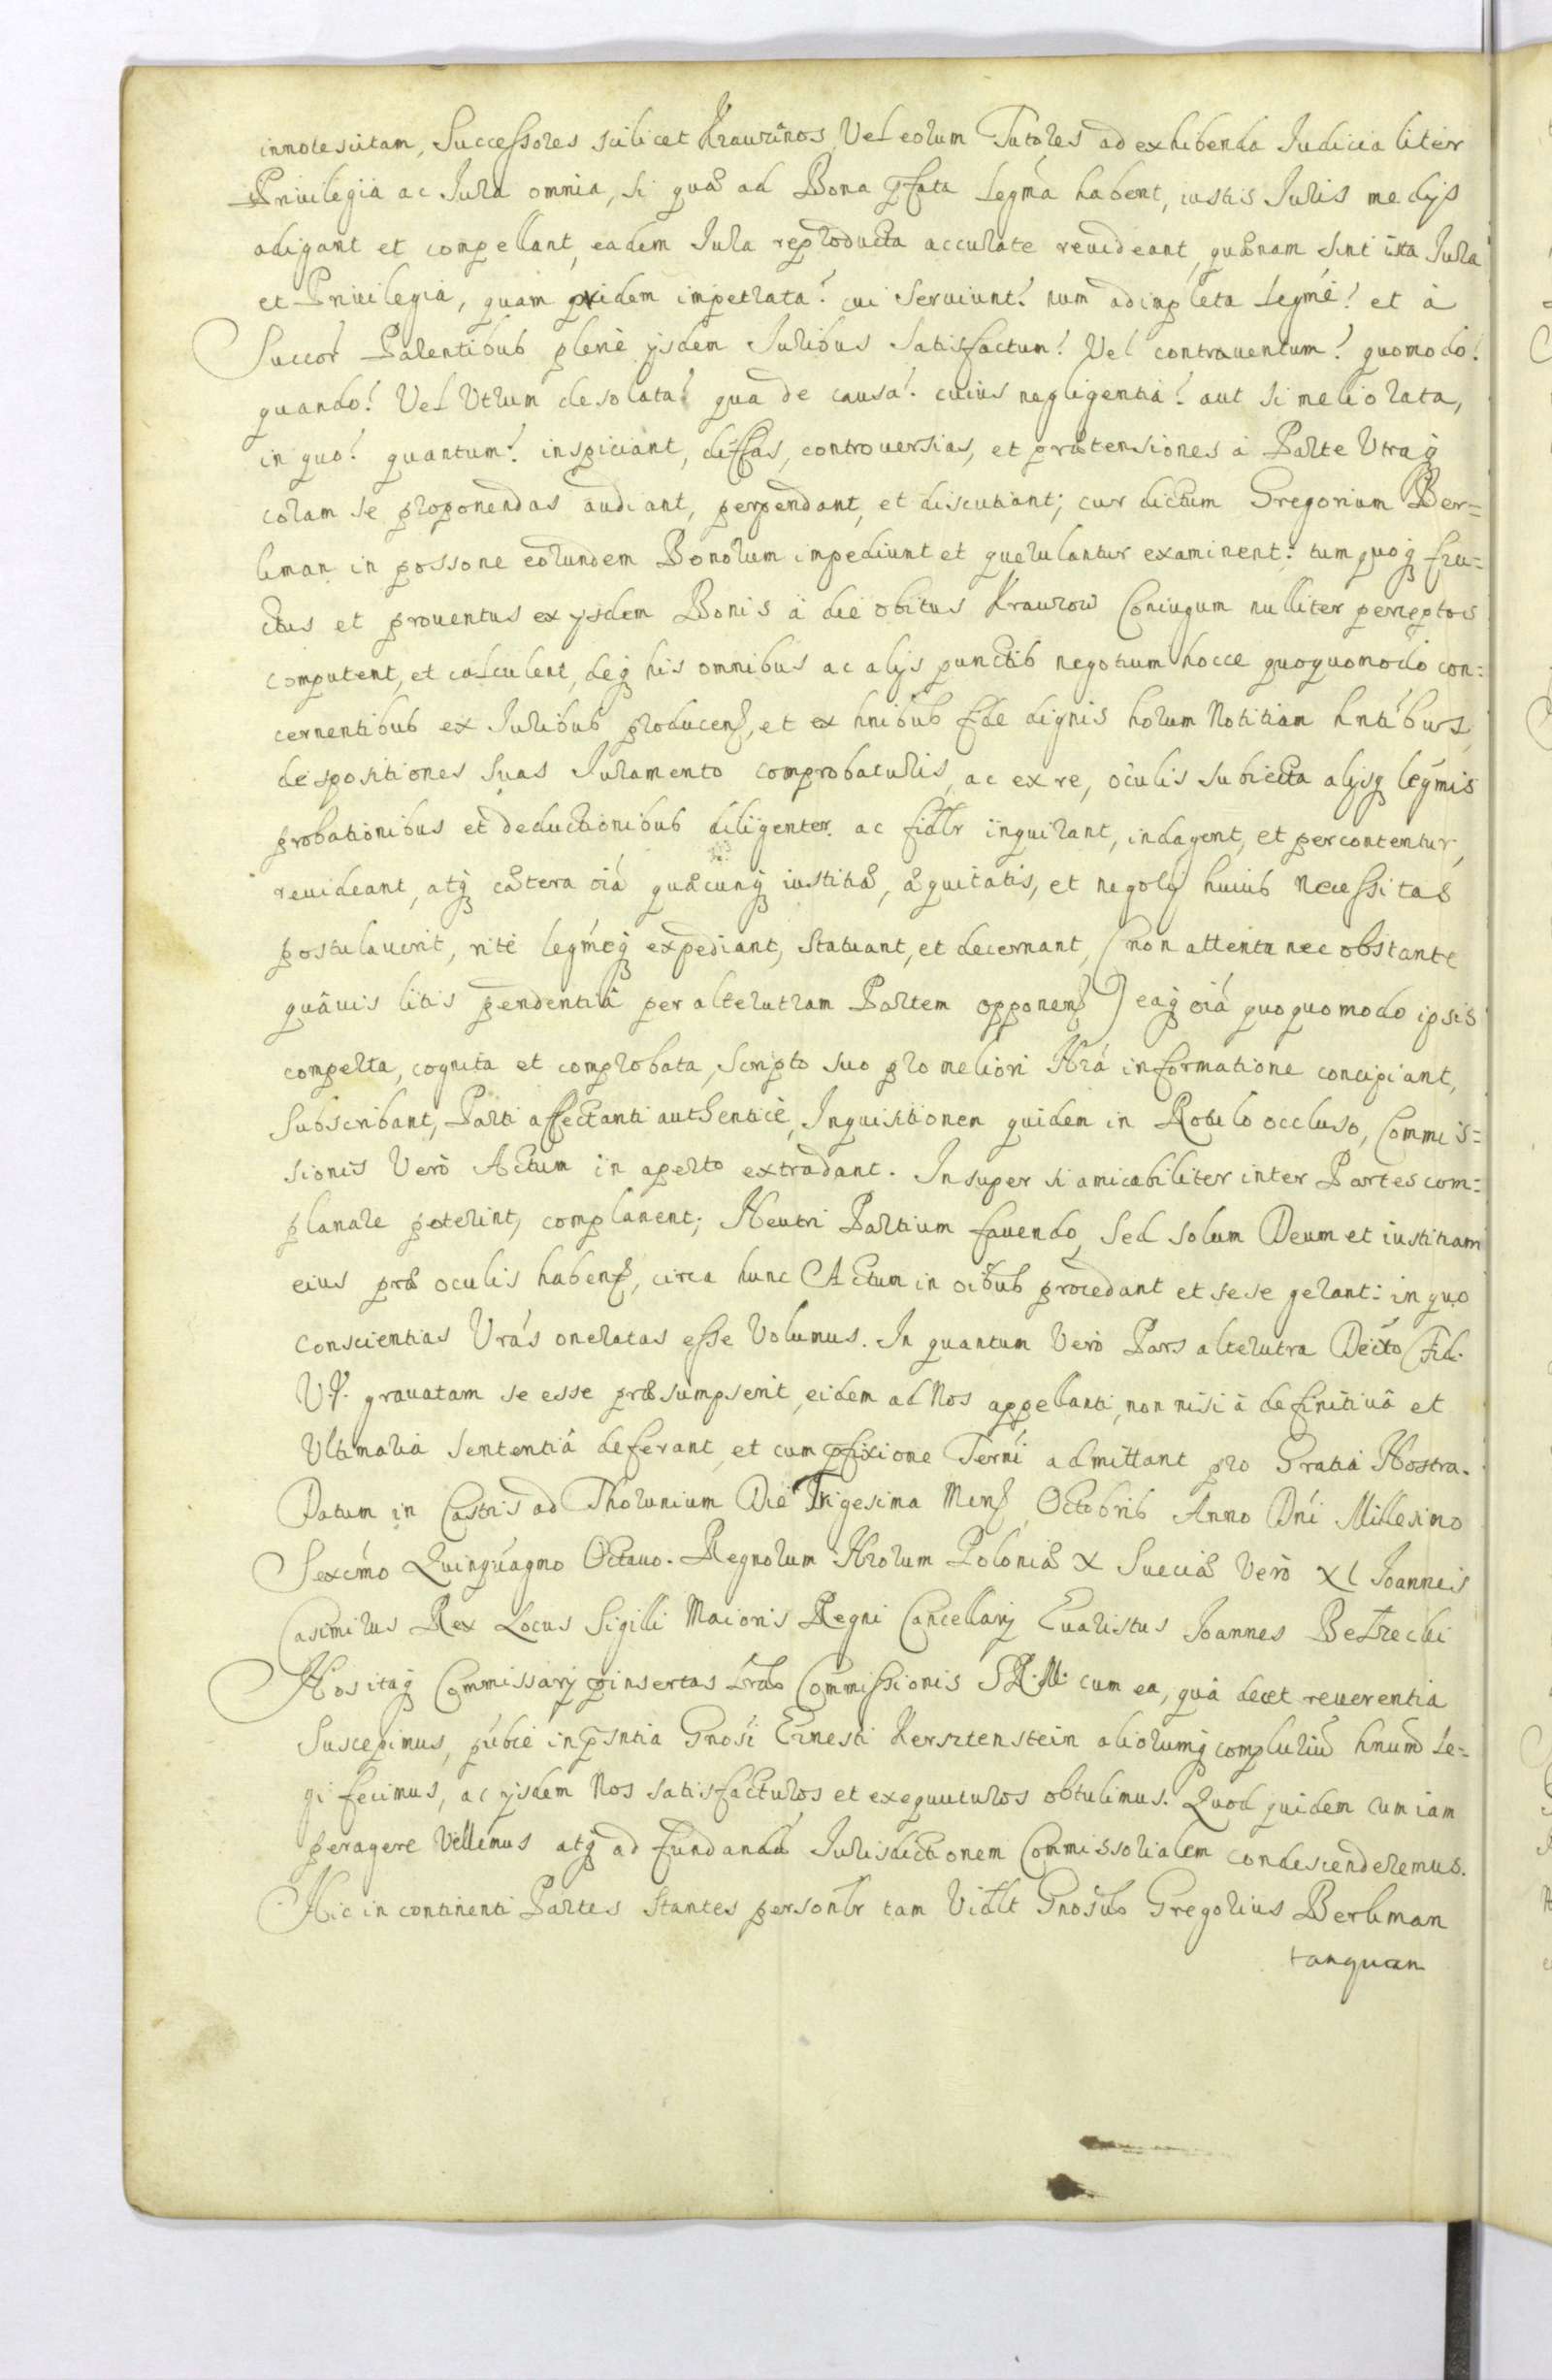 innotescitam, Successores scilicet Krauzinos, Vel eorum Tutores ad exhibenda Judicialiter
Privilegia ac Jura omnia, si quæ ad Bona pfata legma habent, iustis Juris medijs
adigant et compellant, eadem Jura reproducta accurate revideant, quænam sint ista Jura
et Privilegia, quam pridem impetrata? cui serviunt? num adimpleta legme? et à
Succor Parentibus plenè ijsdem Juribus satisfactum? Vel contrauentum? quomodo?
quando? Vel Utrum desolata? qua de causa? cuius negligentiâ? aut si meliorata,
in quo? quantum? inspiciant, diffas, controversias, et prætensiones à Parte Utraq
coram se proponendas audiant, perpendant, et discutiant; cur dictum Gregorium Ber=
kman in possone eorundem Bonorum impediunt et querulantur examinent: tum quoq fru=
ctus et proventus ex ijsdem Bonis à die obitus Krauzow Coniugum nulliter perceptos
computent, et calculent, deq his omnibus ac alijs punctib negotium hocce quoquomodo con=
cernentibus ex Juribus producen, et ex hnibus fide dignis horum Notitiam hntibus,
despositiones suas Juramento comprobaturis, ac ex re, oculis subiecta alijsq legmis
probationibus et deductionibus diligenter ac fidlr inquirant, indagent, et percontentur,
revideant, atq cætera oia quæcunq iustitiæ, æquitatis, et negoty huius necessitas
postulaverit, ritè legmeq expediant, statuant, et decernant, (non attenta nec obstante
quâvis litis pendentiâ per alterutram Partem opponen) eaq oia quoquomodo ipsis
comperta, cognita et comprobata, scripto suo pro meliori Nra informatione concipiant,
Subscribant, Parti affectanti authenticè, Inquisitionem quidem in Rotulo occluso, Commis=
sionis Verò Actum in aperto extradant. Insuper si amicabiliter inter Partes com=
planare poterint, complanent; Neutri Partium favendo, sed solum Deum et iustitiam
eius præ oculis haben, circa hunc Actum in oibus procedant et sese gerant: in quo
conscientias Vras oneratas esse Volumus. In quantum Verò Pars alterutra Decto Fid.
V. gravatam se esse præsumpserit, eidem ad Nos appellanti, non nisi à definitivâ et
Ultimaria sententiâ deferant, et cum pfixione Terni admittant pro Gratiâ Nostra.
Datum in Castris ad Thorunium Die Trigesima Men Octobris Anno Dni Millesimo
Sexcmo Quinquagmo Octavo. Regnorum Nrorum Poloniæ X Sueciæ Verò XI Joannes
Casimirus Rex Locus Sigilli Maioris Regni Cancellary Evaristus Joannes Bełzecki
Nos itaq Commissary pinsertas Lras Commissionis S R M: cum ea, quâ decet reverentia
suscepimus, publcè in psntia Gnosi Ernesti Kersztenstein aliorumq complurium hnum le=
gi fecimus, ac ijsdem Nos satisfacturos et exequuturos obtulimus. Quod quidem cum iam
peragere Vellemus atq ad fundandam Jurisdictionem Commissorialem condescenderemus.
Hic in continenti Partes stantes personlr tam Vidlt Gnosus Gregorius Berkman
tanquam